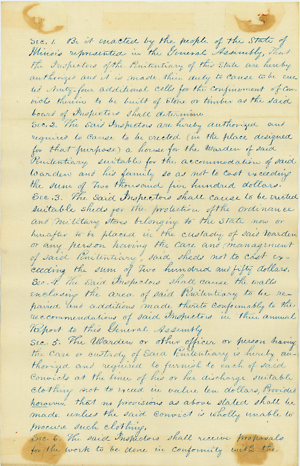 Sec. 1. Be it enacted by the people of the State of
Illinois represented in the General Assembly, That
the Inspectors of the Penitentiary of this State are hereby
authorized and it is made their duty to cause to be erec-
ted Ninty-four additional cells for the confinement of con-
victs therein to be built of stone or timber as the said
board of Inspectors shall determine
Sec. 2. The said Inspectors are hereby authorized and
required to cause to be erected (in the place designed
for that purpose) a house for the Warden of said
Penitentiary suitable for the accommodation of said
Warden and his family so as not to cost exceeding
the sum of two thousand five hundred dollars.
Sec. 3. The said Inspectors shall cause to be erected
suitable sheds for the protection of the ordinance
and military stores belonging to the State now or
hereafter to be placed in the custody of said Warden
or any person having the care and management
of said Penitentiary, said sheds not to cost ex-
ceeding the sum of two hundred and fifty dollars.
Sec. 4. The said Inspectors shall cause the walls
enclosing the area of said Penitentiary to be re-
paired and additions made thereto conformably to the
recommendations of said Inspectors in their annual
Report to this General Assembly
Sec. 5. The Warden or other officer or person having
the care or custody of said Penitentiary is hereby au-
thorized and required to furnish to each of said
convicts at the time of his or her discharge suitable
clothing not to exceed in value ten dollars, Provided
however that no provisions as above stated shall be
made unless the said convict is wholly unable to
procure such clothing.
Sec. 6. The said Inspectors shall receive proposals
for the work to be done in conformity with the